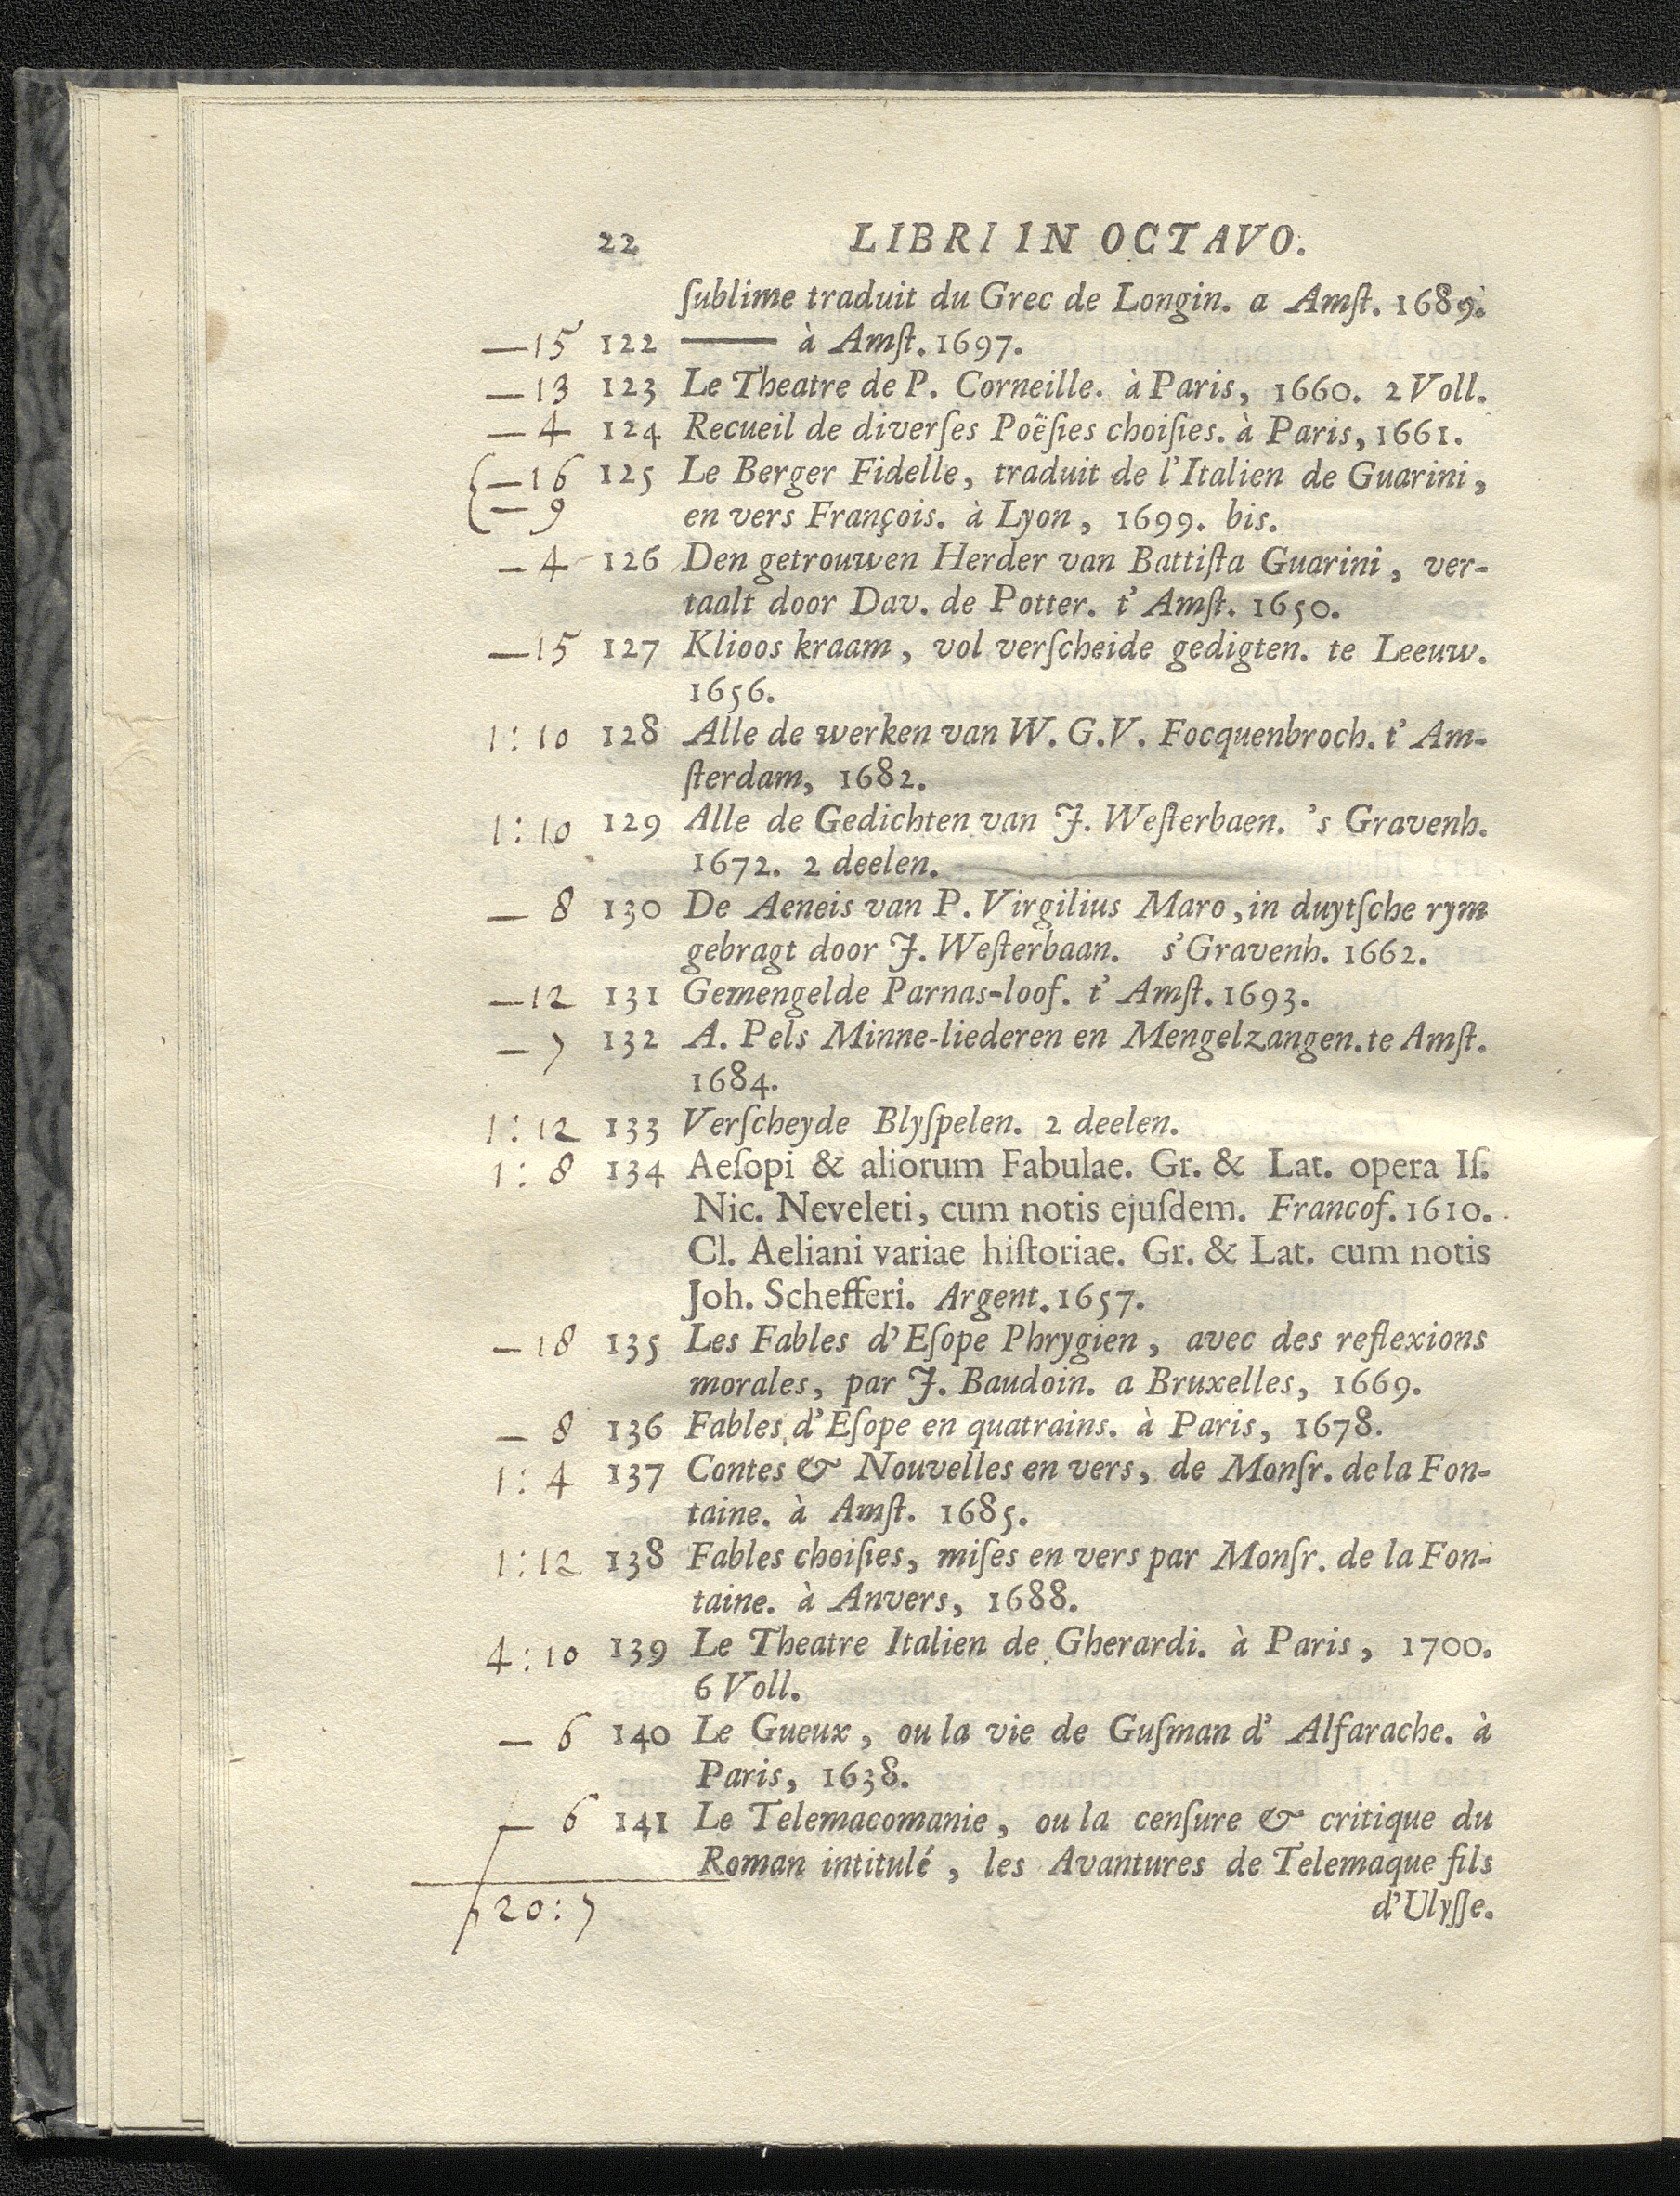 22 LIBRI IN OCTAVO.
ſublime traduit du Grec de Longin. a Amſt. 1689.
—15 122 —— à Amſt. 1697.
—13 123 Le Theatre de P. Corneille. à Paris, 1660. 2 Voll.
—4 124 Recueil de diverſes Poëſies choiſies. à Paris, 1661.
{—16 125 Le Berger Fidelle, traduit de l'Italien de Guarini,
{—9 en vers François. à Lyon, 1699. bis.
—4 126 Den getrouwen Herder van Battiſta Guarini, ver-
taalt door Dav. de Potter. t' Amſt. 1650.
—15 127 Klioos kraam, vol verſcheide gedigten. te Leeuw.
1656.
1:10 128 Alle de werken van W. G. V. Focquenbroch. t' Am-
ſterdam, 1682.
1:10 129 Alle de Gedichten van J. Weſterbaen. 's Gravenh.
1672. 2 deelen.
—8 130 De Aeneis van P. Virgilius Maro, in duytſche rym
gebragt door J. Weſterbaan. s' Gravenh. 1662.
—12 131 Gemengelde Parnas-loof. t' Amſt. 1693.
—7 132 A. Pels Minne-liederen en Mengelzangen. te Amſt.
1684.
1:12 133 Verſcheyde Blyſpelen. 2 deelen.
1:8 134 Aeſopi & aliorum Fabulae. Gr. & Lat. opera Iſ.
Nic. Neveleti, cum notis ejuſdem. Francof. 1610.
Cl. Aeliani variae hiſtoriae. Gr. & Lat. cum notis
Joh. Schefferi. Argent. 1657.
—18 135 Les Fables d'Eſope Phrygien, avec des reflexions
morales, par J. Baudoin. a Bruxelles, 1669.
—8 136 Fables d'Eſope en quatrains. à Paris, 1678.
1:4 137 Contes & Nouvelles en vers, de Monſr. de la Fon-
taine. à Amſt. 1685.
1:12 138 Fables choiſies, miſes en vers par Monſr. de la Fon-
taine. à Anvers, 1688.
4:10 139 Le Theatre Italien de Gherardi. à Paris, 1700.
6 Voll.
—6 140 Le Gueux, ou la vie de Guſman d' Alfarache. à
Paris, 1638.
—6 141 Le Telemacomanie, ou la cenſure & critique du
Roman intitulé, les Avantures de Telemaque fils
ƒ20:7 d'Ulyſſe.